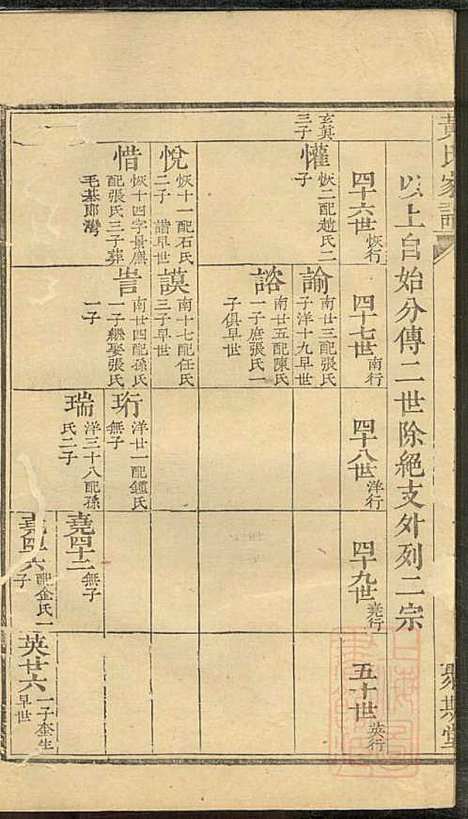 以上自始分傳二世除絕支外列二宗
四十六世 恢行
四十七世 南行
四十八世 洋行
四十九世 堯行
五十世 英行
玄英
三子
懽 恢二配趙氏二
子
諭 南廿三配張氏
子洋十九早世
諮 南廿五配陳氏
一子庶張氏一
子俱早世
悅 恢十一配石氏
二子 譜早世
謨 南十七配任氏
三子早世
珩 洋廿一配鍾氏
無子
惜 恢十四字景廉
配張氏三子葬
毛基郎灣
南廿四配孫氏
一子繼娶張氏
一子
瑞 洋三十八配孫
氏二子
堯四十二 無子
六 配金氏一
子
英廿六 一子奎生
早世